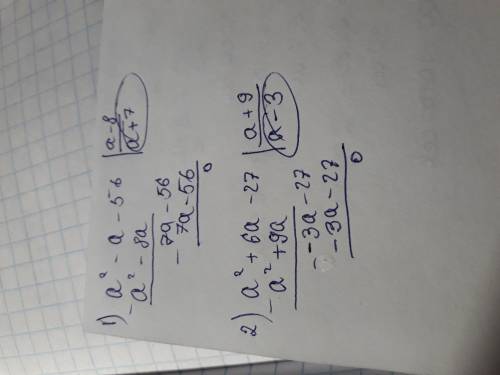 1) a² - a - 56 | a-8
- a² - 8a | a+7
- 7a - 56
7a - 56
0
2) a² + 6a - 27 | a+9
- a² + 9a | a-3
- -3a - 27
-3a - 27
0